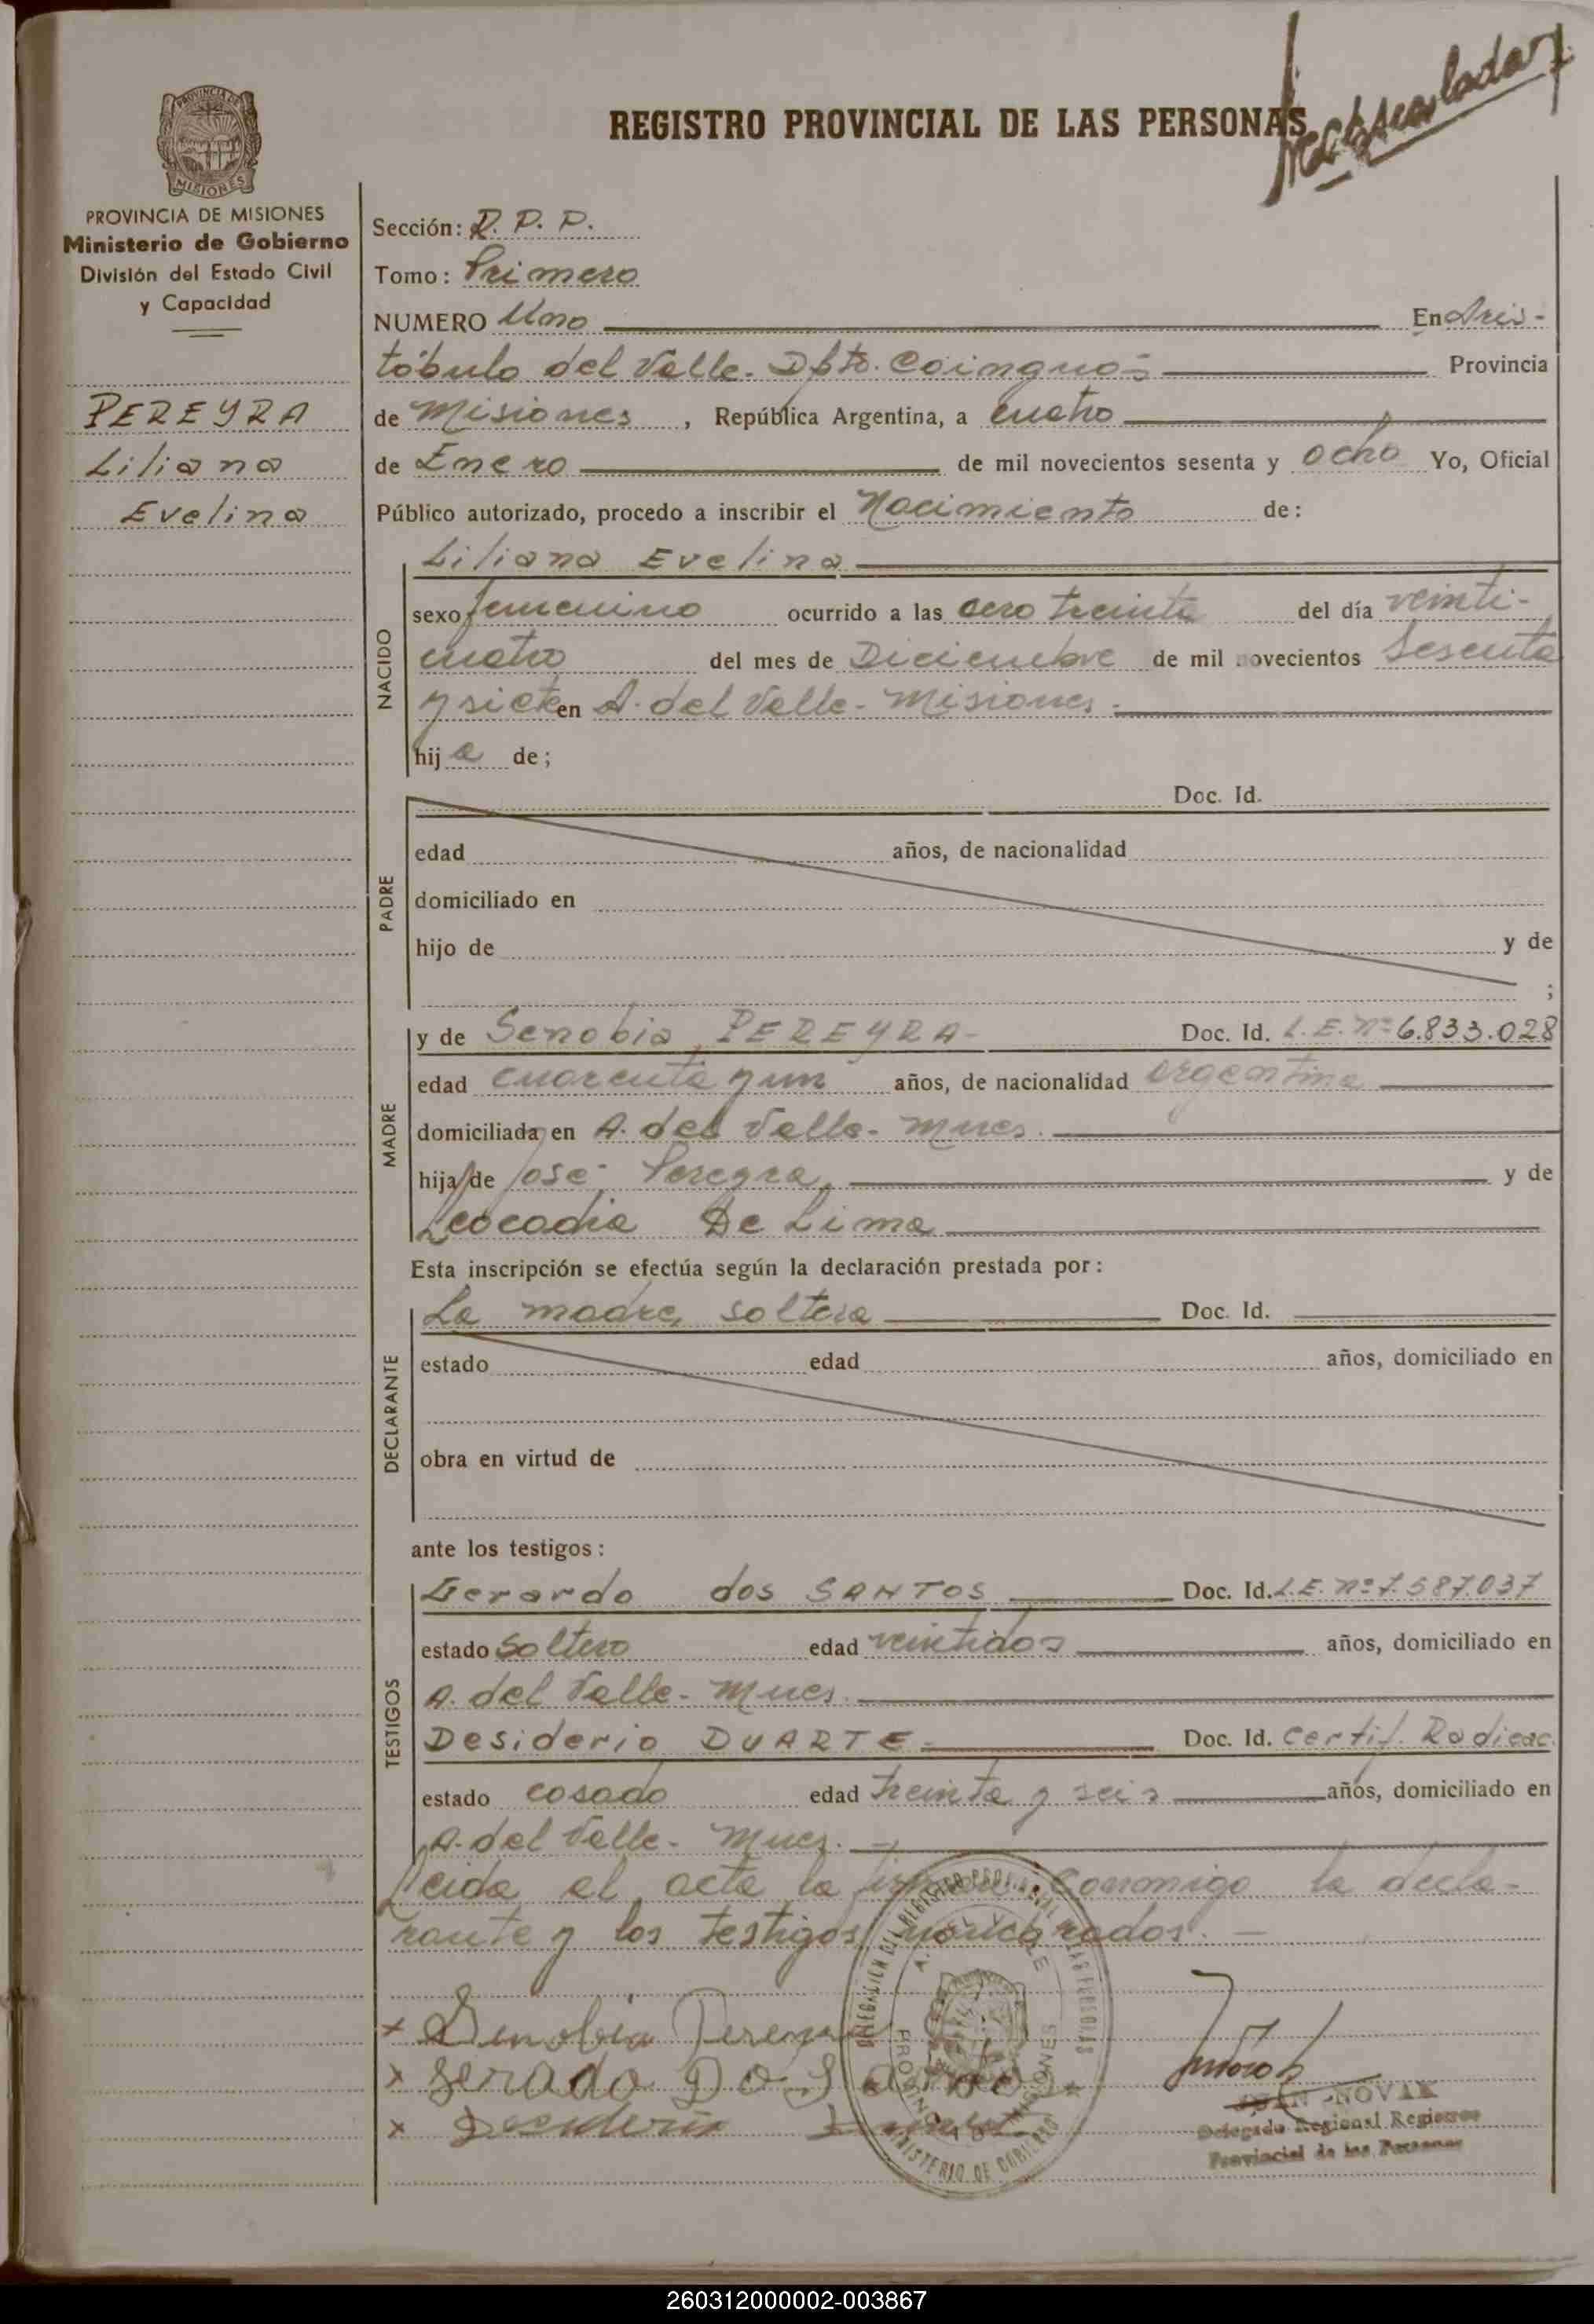 REGISTRO PROVINCIAL DE LAS PERSONAS
PROVINCIA DE
MISIONES
PROVINCIA DE MISIONES
Ministerio de Gobierno
División del Estado Civil
y Capacidad
PEREYRA
Liliana
Evelina
Sección: R. P. P.
Tomo: Primero
NUMERO Uno En Aris-
tóbulo del Valle. Dpto. Cainguás Provincia
de Misiones, República Argentina, a cuatro
de Enero de mil novecientos sesenta y ocho Yo, Oficial
Público autorizado, procedo a inscribir el Nacimiento de:
NACIDO
Liliana Evelina
sexo femenino ocurrido a las cero treinta del día veinti-
cuatro del mes de Diciembre de mil novecientos sesenta
y siete en A. del Valle. Misiones.
hija de;
PADRE
Doc. Id.
edad años, de nacionalidad
domiciliado en
hijo de y de
;
MADRE
y de Senobia PEREYRA- Doc. Id. L.E. Nº 6.833.028
edad cuarenta y un años, de nacionalidad argentina
domiciliada en A. del Valle. Mnes.
hija de José Pereyra, y de
Leocadia De Lima
Esta inscripción se efectúa según la declaración prestada por:
DECLARANTE
La madre, soltera Doc. Id.
estado edad años, domiciliado en
obra en virtud de
ante los testigos:
TESTIGOS
Gerardo dos SANTOS Doc. Id. L.E. nº 7.587.037
estado soltero edad veintidos años, domiciliado en
A. del Valle- Mnes.
Desiderio DUARTE- Doc. Id. Certif. Radicac.
estado casado edad treinta y seis años, domiciliado en
A. del Valle- Mnes.
Leida el acta la firman conmigo la decla-
rante y los testigos nombrados.-
x Senobia Pereyra
x Gerado Do Santo
x Desiderio
MINISTERIO DE GOBIERNO
JUAN NOVAK
Delegado Regional Registro
Provincial de las Personas
260312000002-003867